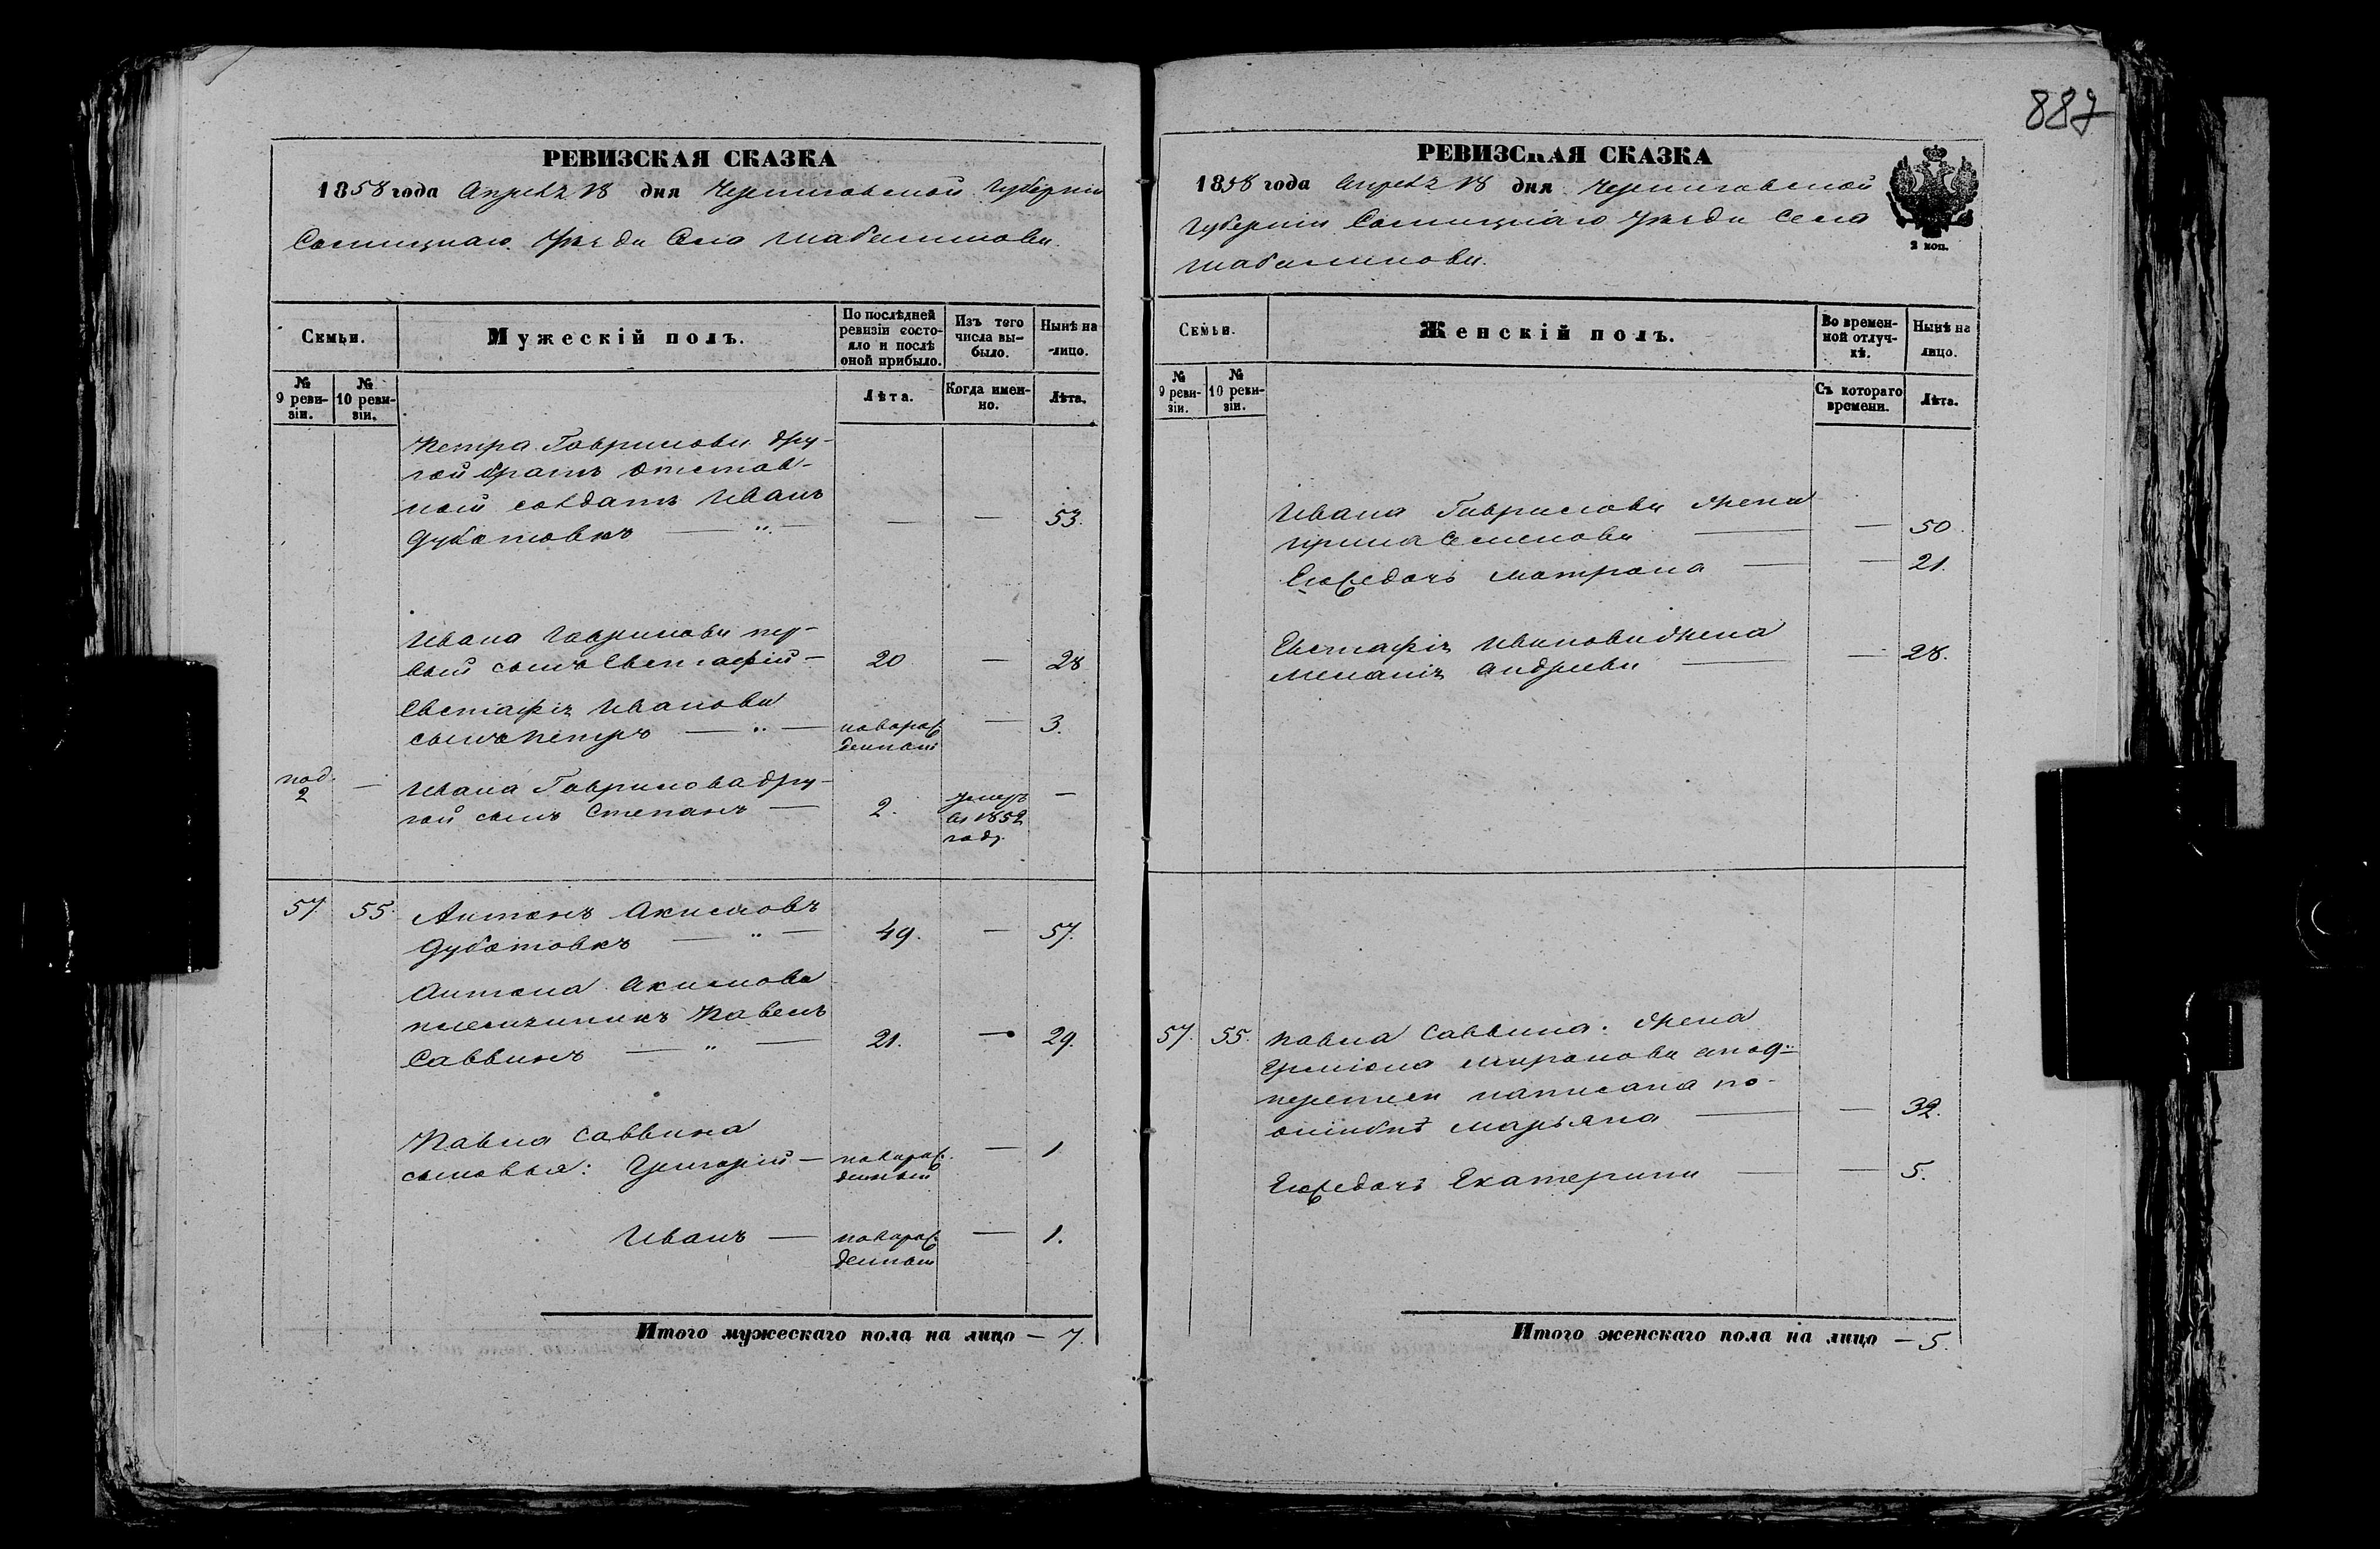 887
РЕВИЗСКАЯ СКАЗКА
1858 года Апреля 18 дня Черниговской Губернiи
Сосницкаго Уезда Села Шабалинова.
Семьи.
Мужескiй полъ.
По послѣдней ревизiи состо-
яло и послѣ
оной прибыло.
Изъ того
числа вы-
было.
Нынѣ на
-лицо.
№
9 реви-
зiи.
№
10 реви-
зiи.
Лѣта.
Когда имен-
но.
Лѣта.
Петра Гаврилова дру-
гой братъ отстав-
ной солдатъ Иванъ
Дубатовкъ — „ — — — 53.
Ивана Гаврилова пер-
вый сынъ Евстафiй — 20 — 28
Евстафiя Иванова
сынъ Петръ — „ — новорож
денной — 3.
под.
2 — Ивана Гаврилова дру-
гой сынъ Степанъ — 2. умеръ
въ 1852
году. —
57. 55. Антонъ Акимовъ
Дубатовкъ — „ — 49. — 57.
Антона Акимова
племянникъ Павелъ
Саввинъ — „ — 21. — 29.
Павла Саввина
сыновья: Григорiй — новорож
денный — 1
Иванъ — новорож
денной — 1.
Итого мужескаго пола на лицо — 7.
РЕВИЗСКАЯ СКАЗКА
1858 года Апреля 18 дня Черниговской
Губернiи Сосницкаго Уезда Села
Шабалинова.
2 коп.
Семьи.
Женскiй полъ.
Во времен-
ной отлуч-
кѣ.
Нынѣ на
лицо.
№
9 реви-
зiи.
№
10 реви-
зiи.
Съ котораго
времени.
Лѣта.
Ивана Гаврилова жена
Ирина Семенова — — 50.
Егоже дочь Матрона — — 21.
Евстафiя Иванова жена
Меланiя Андреева — — 28.
57. 55. Павла Саввина жена
Миронова а по 9й
переписи написана по
ошибкѣ Марьяна — — 32.
Егоже дочь Екатерина — — 5.
Итого женскаго пола на лицо — 5.